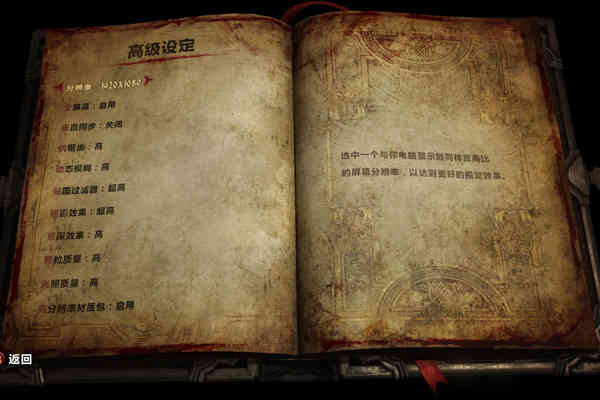 高级设定
分辨率 1920X1080
全屏幕：启用
垂直同步：关闭
抗锯齿：高
动态模糊：高
贴图过滤器：超高
阴影效果：超高
景深效果：高
颗粒质量：高
光照质量：高
高分辨率材质包：启用
选中一个与你电脑显示器同样宽高比
的屏幕分辨率，以达到更好的视觉效果。
返回